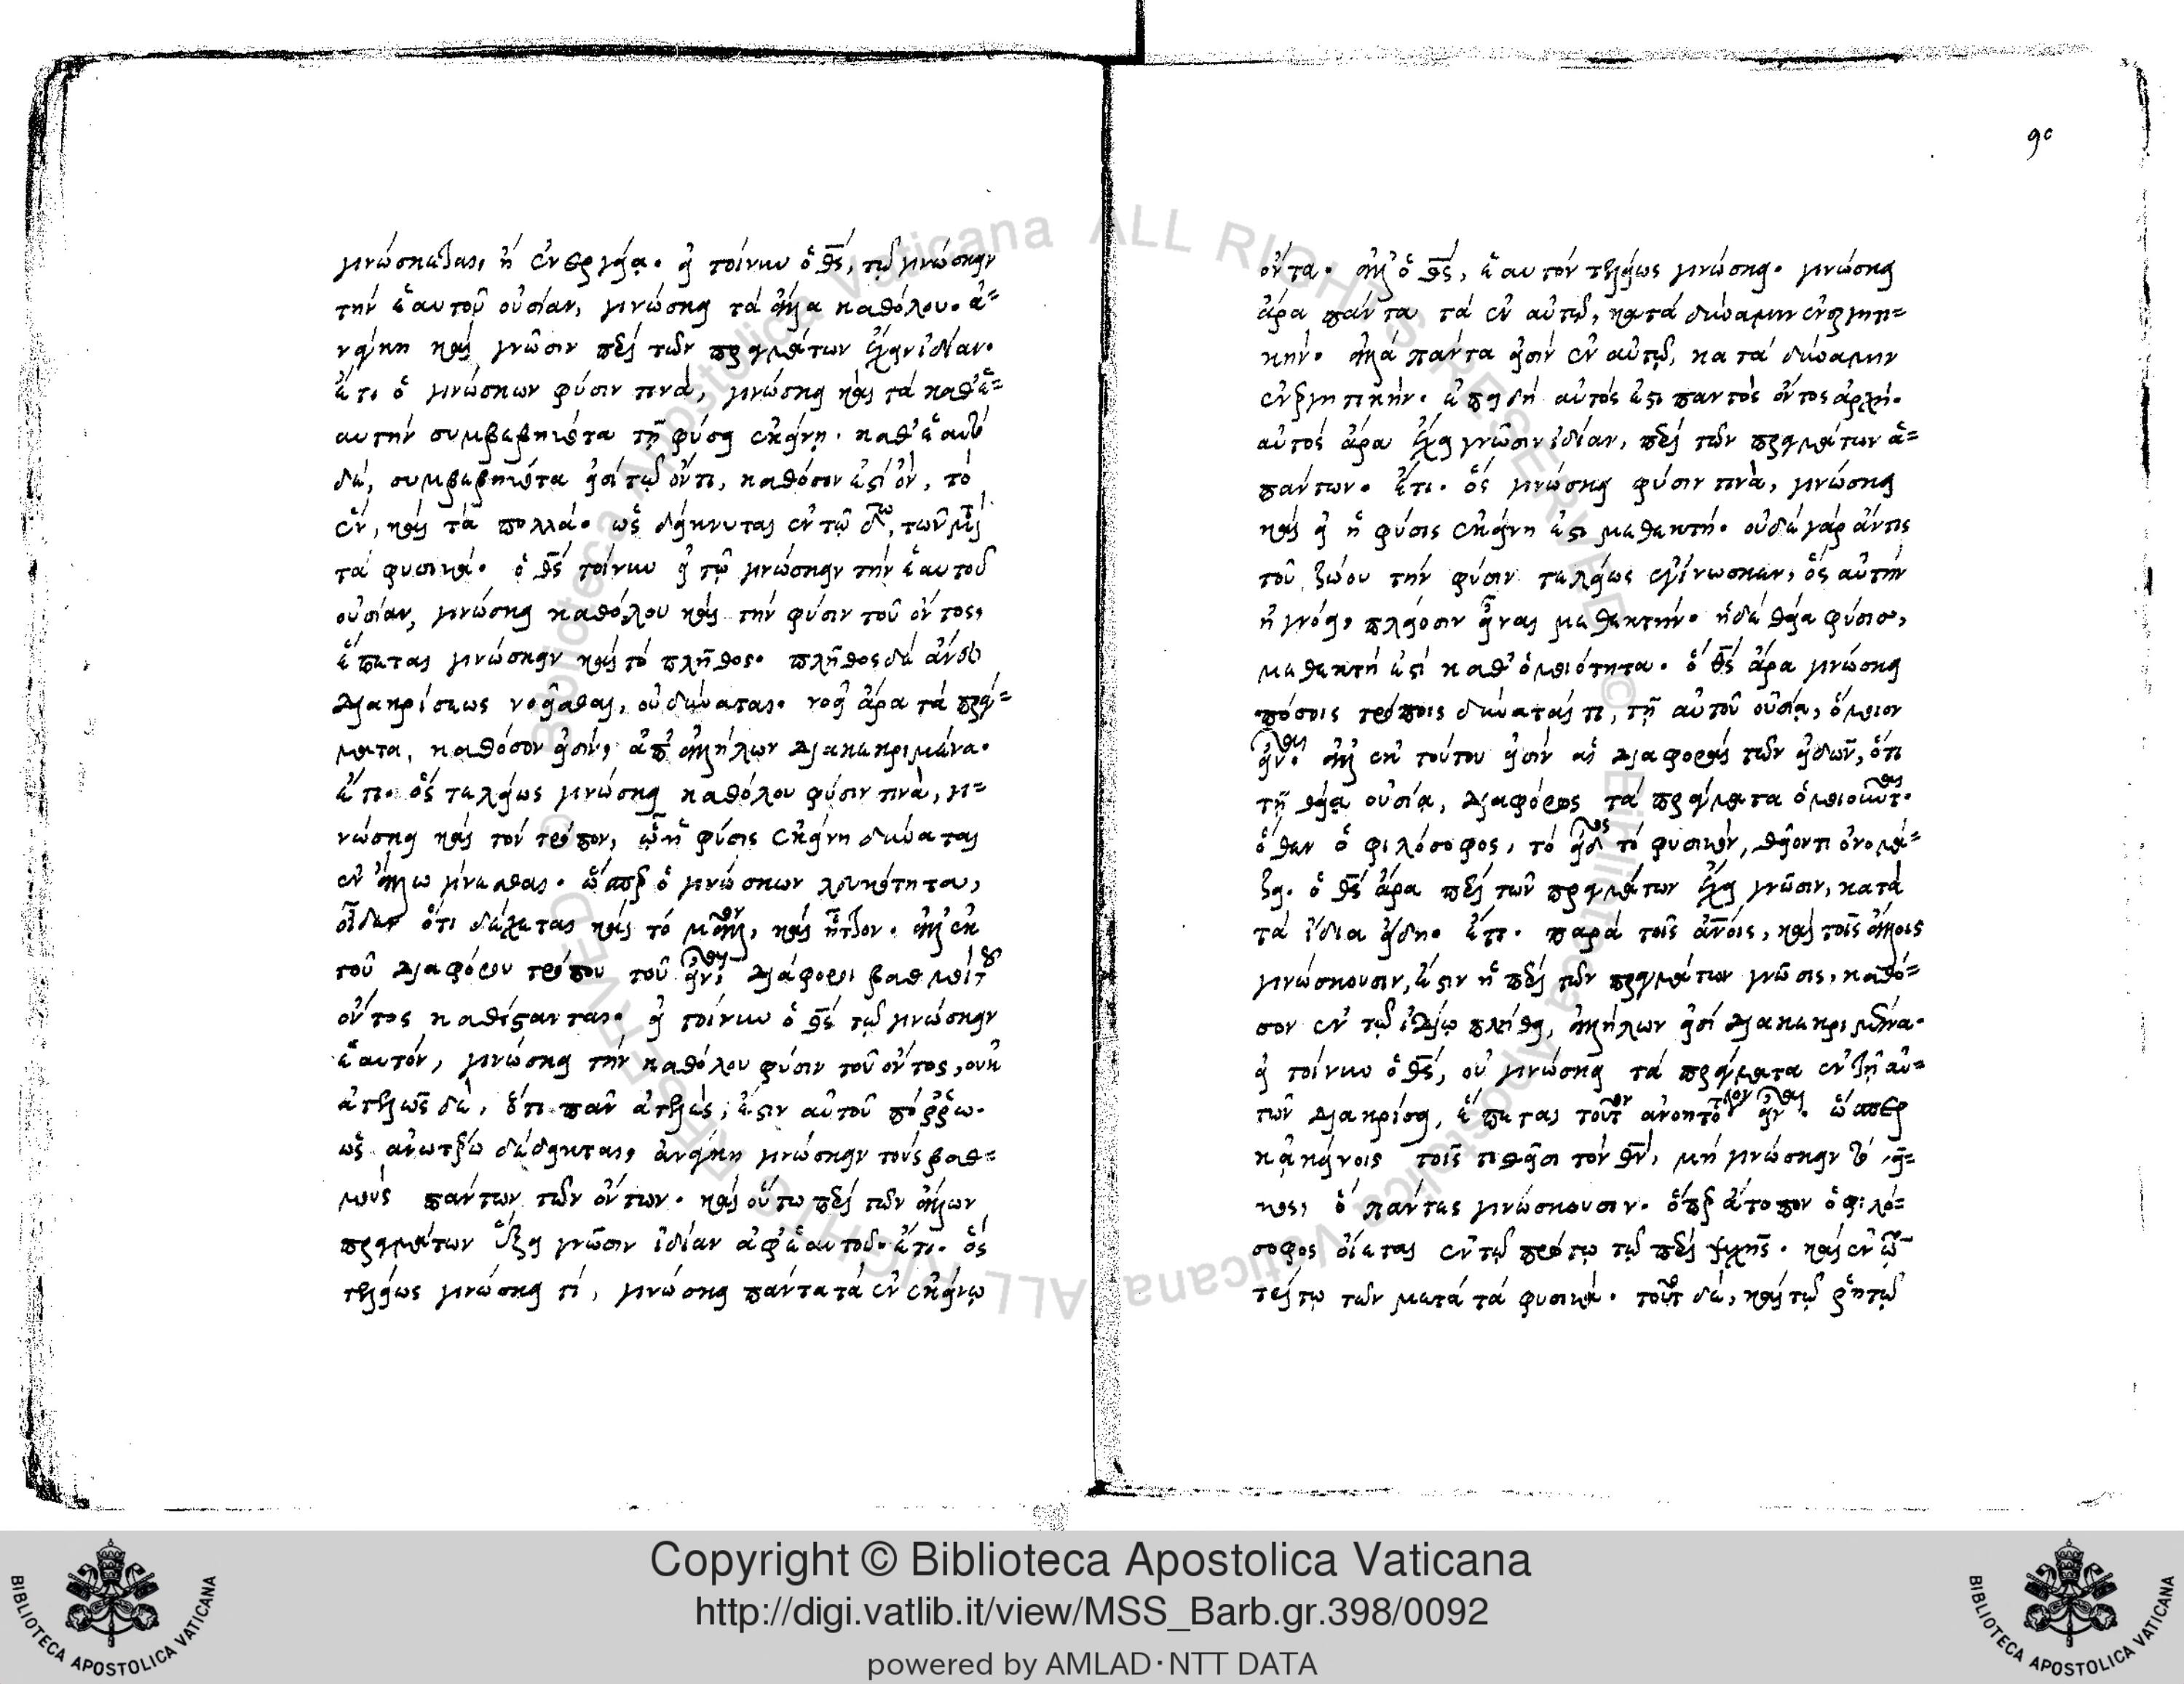 γινώσκεται, ἢ ἐνεργεία. εἰ τοίνυν ὁ θς, τῷ γινώσκειν
τὴν ἑαυτοῦ οὐσίαν, γινώσκει τὰ ἄλλα καθόλου. ἀ=
νάγκη καὶ γνῶσιν περὶ τῶν πραγμάτων ἔχειν ἰδίαν.
ἔτι ὁ γινώσκων φύσιν τινὰ, γινώσκει καὶ τὰ καθ' ἑ=
αυτὴν συμβεβηκότα τῇ φύσει ἐκείνῃ. καθ' ἑαυτὸ
δὲ, συμβεβηκότα εἰσὶ τῷ ὄντι, καθόσον ἐστὶ ὂν, τὸ
ἓν, καὶ τὰ πολλά. ὡς δείκνυται ἐν τῷ δω, τῶν μετὰ
τὰ φυσικά. ὁ θς τοίνυν εἰ τῷ γινώσκειν τὴν ἑαυτοῦ
οὐσίαν, γινώσκει καθόλου καὶ τὴν φύσιν τοῦ ὄντος,
ἕπεται γινώσκειν καὶ τὸ πλῆθος. πλῆθος δὲ ἄνευ
διακρίσεως νοεῖσθαι, οὐ δύναται. νοεῖ ἄρα τὰ πρά=
γματα, καθόσον εἰσὶν, ἀπ' ἀλλήλων διακεκριμένα.
ἔτι. ὃς τελείως γινώσκει καθόλου φύσιν τινὰ, γι=
νώσκει καὶ τὸν τρόπον, ᾧ ἡ φύσις ἐκείνη δύναται
ἐν ἄλλῳ γίνεσθαι. ὥσπερ ὁ γινώσκων λευκότητα,
οἶδεν ὅτι δέχεται καὶ τὸ μᾶλλον, καὶ ἧττον. ἀλλ' ἐκ
τοῦ διαφόρου τρόπου τοῦ εἶναι, διάφοροι βαθμοὶ τοῦ
ὄντος καθίστανται. εἰ τοίνυν ὁ θς τῷ γινώσκειν
ἑαυτὸν, γινώσκει τὴν καθόλου φύσιν τοῦ ὄντος, οὐκ
ἀτελῶς δὲ, ὅτι πᾶν ἀτελὲς, ἐστιν αὐτοῦ πόρρω.
ὡς ἀνωτέρω δέδεικται, ἀνάγκη γινώσκειν τοὺς βαθ=
μοὺς πάντων τῶν ὄντων. καὶ οὕτω περὶ τῶν ἄλλων
πραγμάτων ἕξει γνῶσιν ἰδίαν ἀφ' ἑαυτοῦ. ἔτι. ὃς
τελείως γινώσκει τὶ, γινώσκει πάντα τὰ ἐν ἐκείνῳ
90
ὄντα. ἀλλ' ὁ θς, ἑαυτὸν τελείως γινώσκει. γινώσκει
ἄρα πάντα τὰ ἐν αὐτῷ, κατὰ δύναμιν ἐνεργητι=
κήν. ἀλλὰ πάντα εἰσὶν ἐν αὐτῷ, κατὰ δύναμιν
ἐνεργητικήν. ἐπειδὴ αὐτὸς ἐστι παντὸς ὄντος ἀρχή.
αὐτὸς ἄρα ἔχει γνῶσιν ἰδίαν, περὶ τῶν πραγμάτων ἁ=
πάντων. ἔτι. ὃς γινώσκει φύσιν τινὰ, γινώσκει
καὶ εἰ ἡ φύσις ἐκείνη ἐστι μεθεκτή. οὐδὲ γὰρ ἄν τις
τοῦ ζώου τὴν φύσιν τελείως ἐγίνωσκεν, ὃς αὐτὴν
ἠγνόει πλείοσιν εἶναι μεθεκτήν. ἡ δὲ θεία φύσις,
μεθεκτὴ ἐστὶ καθ' ὁμοιότητα. ὁ θς ἄρα γινώσκει
πόσοις τρόποις δύναταί τι, τῇ αὐτοῦ οὐσίᾳ, ὅμοιον
εἶναι. ἀλλ' ἐκ τούτου εἰσὶν αἱ διαφοραὶ τῶν εἰδῶν, ὅτι
τῇ θείᾳ οὐσίᾳ, διαφόρως τὰ πράγματα ὁμοιοῦνται.
ὅθεν ὁ φιλόσοφος, τὸ εἶδος τὸ φυσικὸν, θεῖόν τι ὀνομά=
ζει. ὁ θς ἄρα περὶ τῶν πραγμάτων ἔχει γνῶσιν, κατὰ
τὰ ἴδια εἴδη. ἔτι. παρὰ τοῖς ἀνοις, καὶ τοῖς ἄλλοις
γινώσκουσιν, ἐστιν ἡ περὶ τῶν πραγμάτων γνῶσις, καθό=
σον ἐν τῷ ἰδίῳ πλήθει, ἀλλήλων εἰσὶ διακεκριμένα.
εἰ τοίνυν ὁ θς, οὐ γινώσκει τὰ πράγματα ἐν τῇ αὐ=
τῶν διακρίσει, ἕπεται τοῦτον ἀνοητότατον εἶναι. ὥσπερ
κἀκείνοις τοῖς τιθεῖσι τὸν θν, μὴ γινώσκειν τὸ νεῖ=
κος, ὃ πάντες γινώσκουσιν. ὅπερ ἄτοπον ὁ φιλό=
σοφος οἴεται ἐν τῷ πρώτῳ τῷ περὶ ψυχῆς. καὶ ἐν τῷ
τρίτῳ τῶν μετὰ τὰ φυσικά. τοῦτο δὲ, καὶ τῷ ῥητῷ
Copyright © Biblioteca Apostolica Vaticana
http://digi.vatlib.it/view/MSS_Barb.gr.398/0092
powered by AMLAD·NTT DATA
BIBLIOTECA APOSTOLICA VATICANA
BIBLIOTECA APOSTOLICA VATICANA